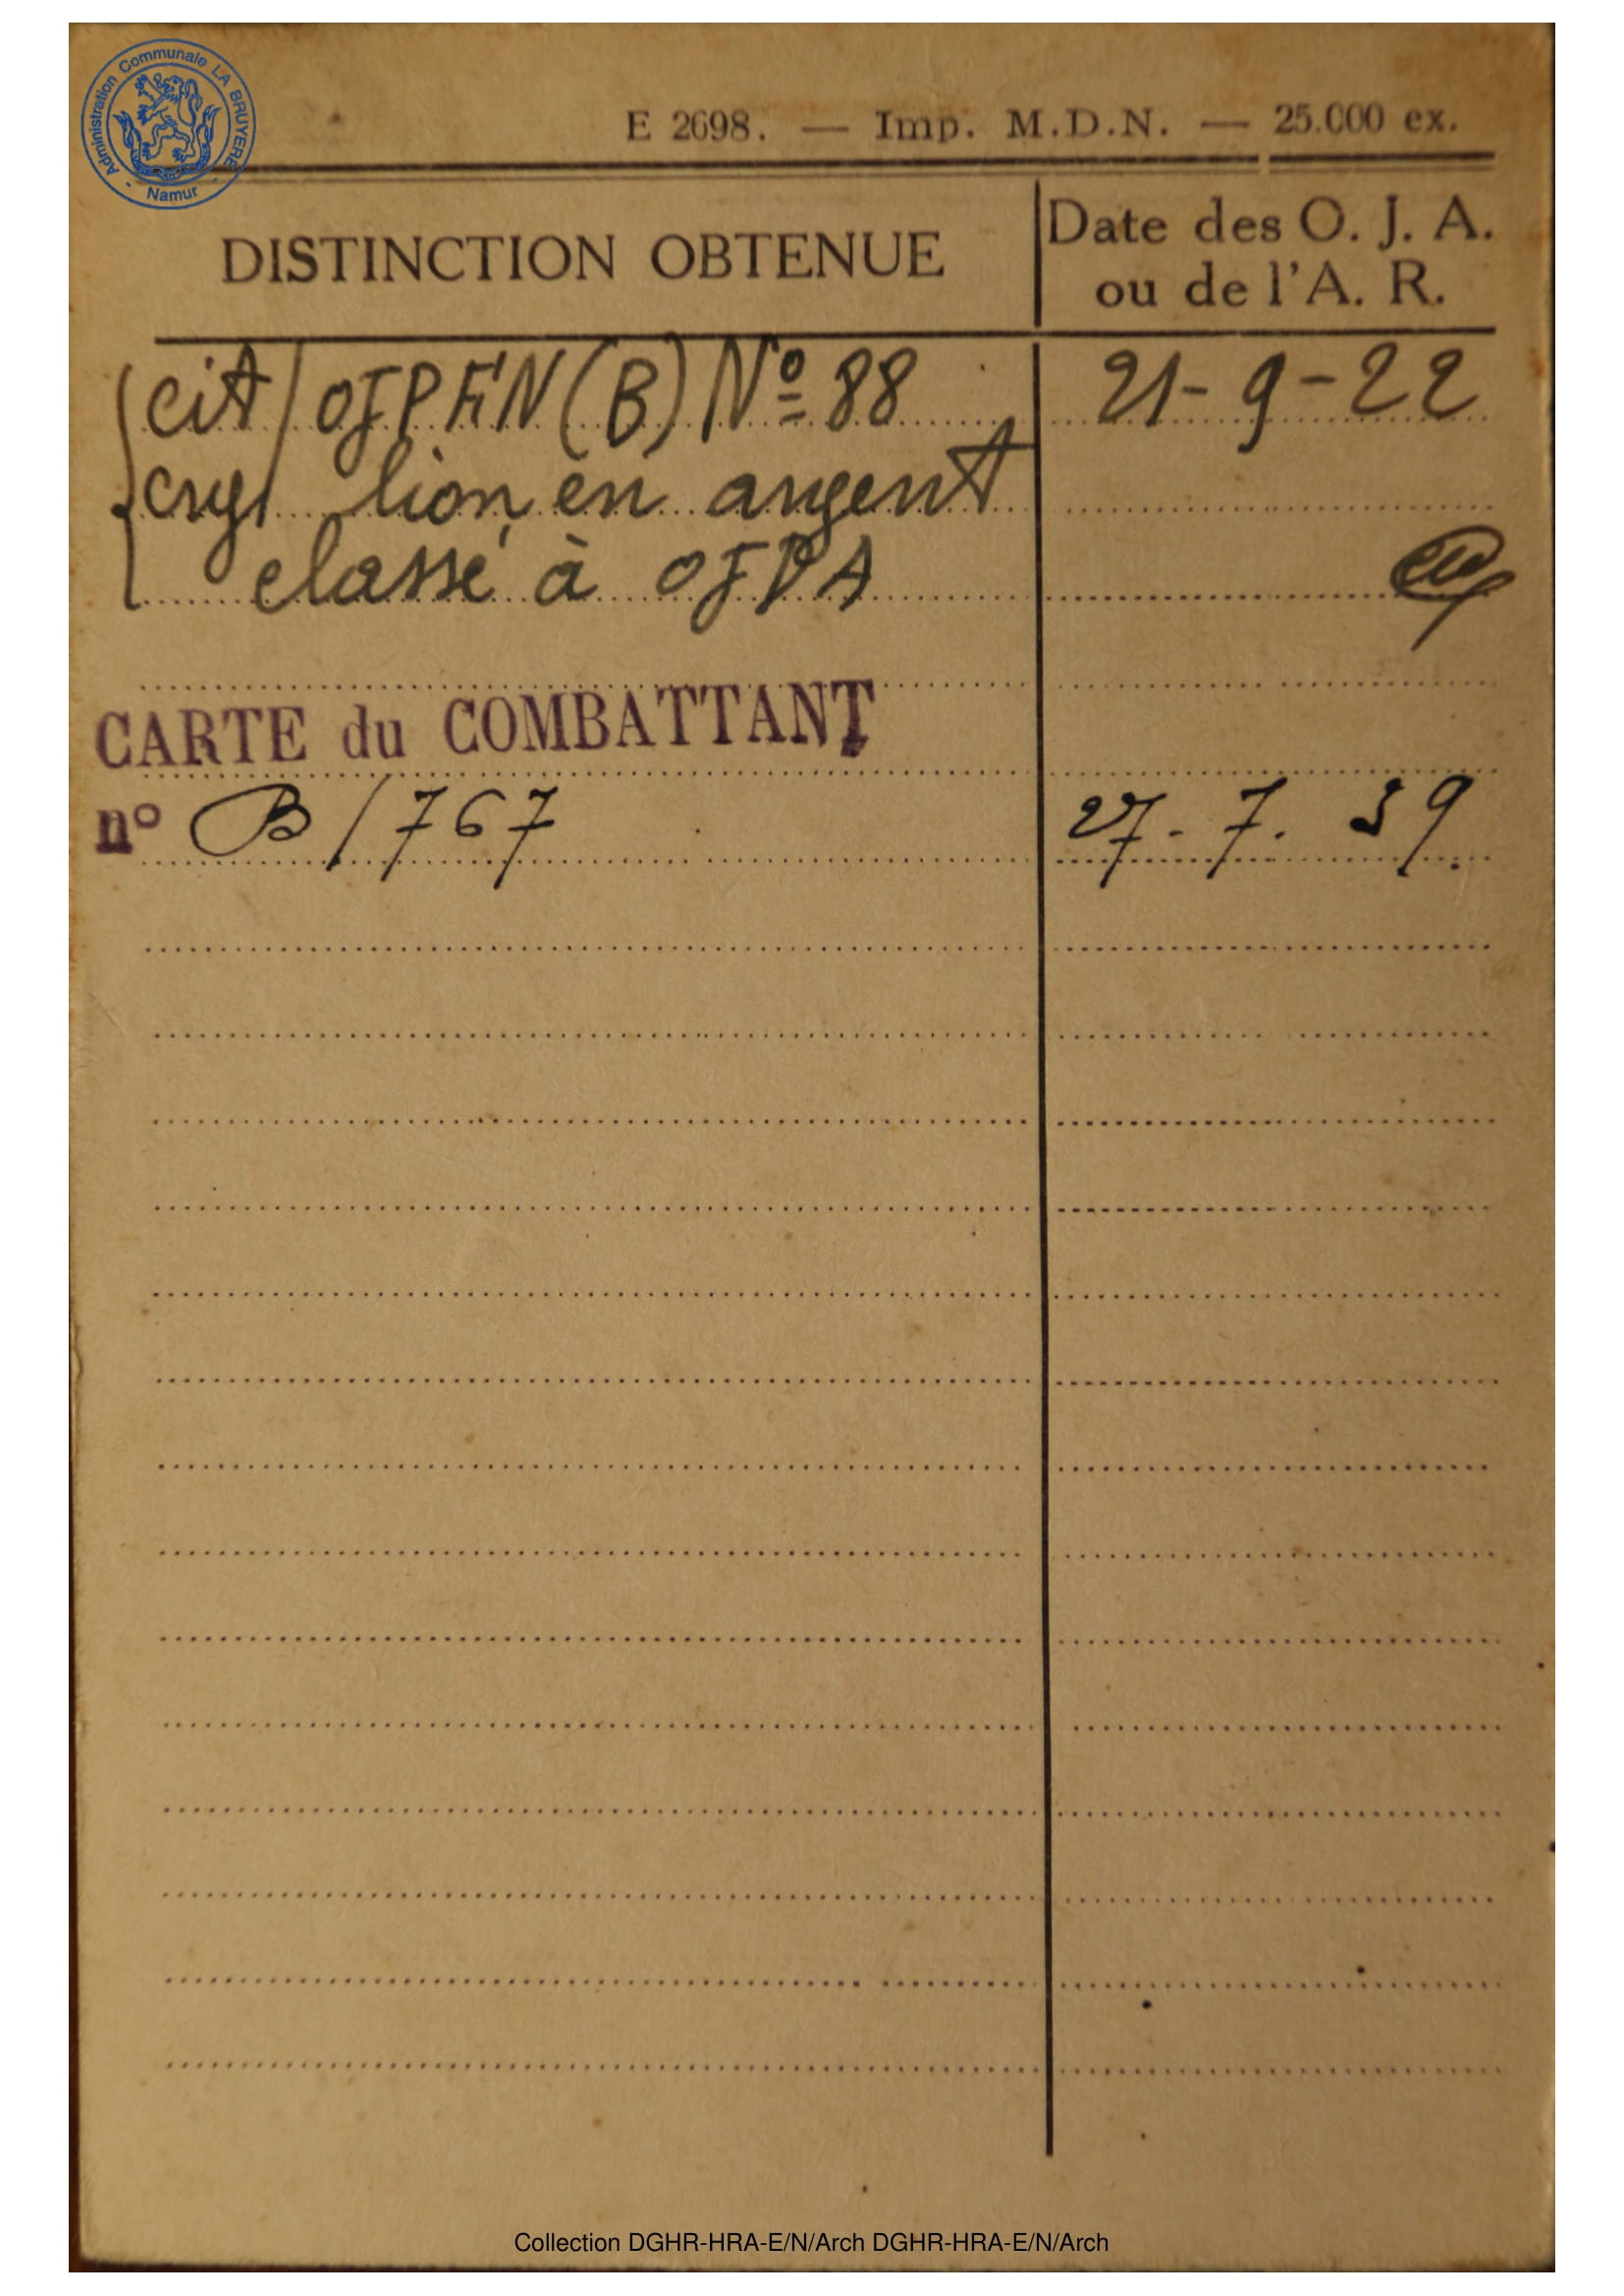 Administration Communale LA BRUYERE - Namur -
E 2698. — Imp. M.D.N. — 25.000 ex.
DISTINCTION OBTENUE
Date des O. J. A.
ou de l'A. R.
cit OJPEN (B) Nº 88 21-9-22
lion en argent
classé à OJPA
CARTE du COMBATTANT
nº B/767 27.7.39.
Collection DGHR-HRA-E/N/Arch DGHR-HRA-E/N/Arch